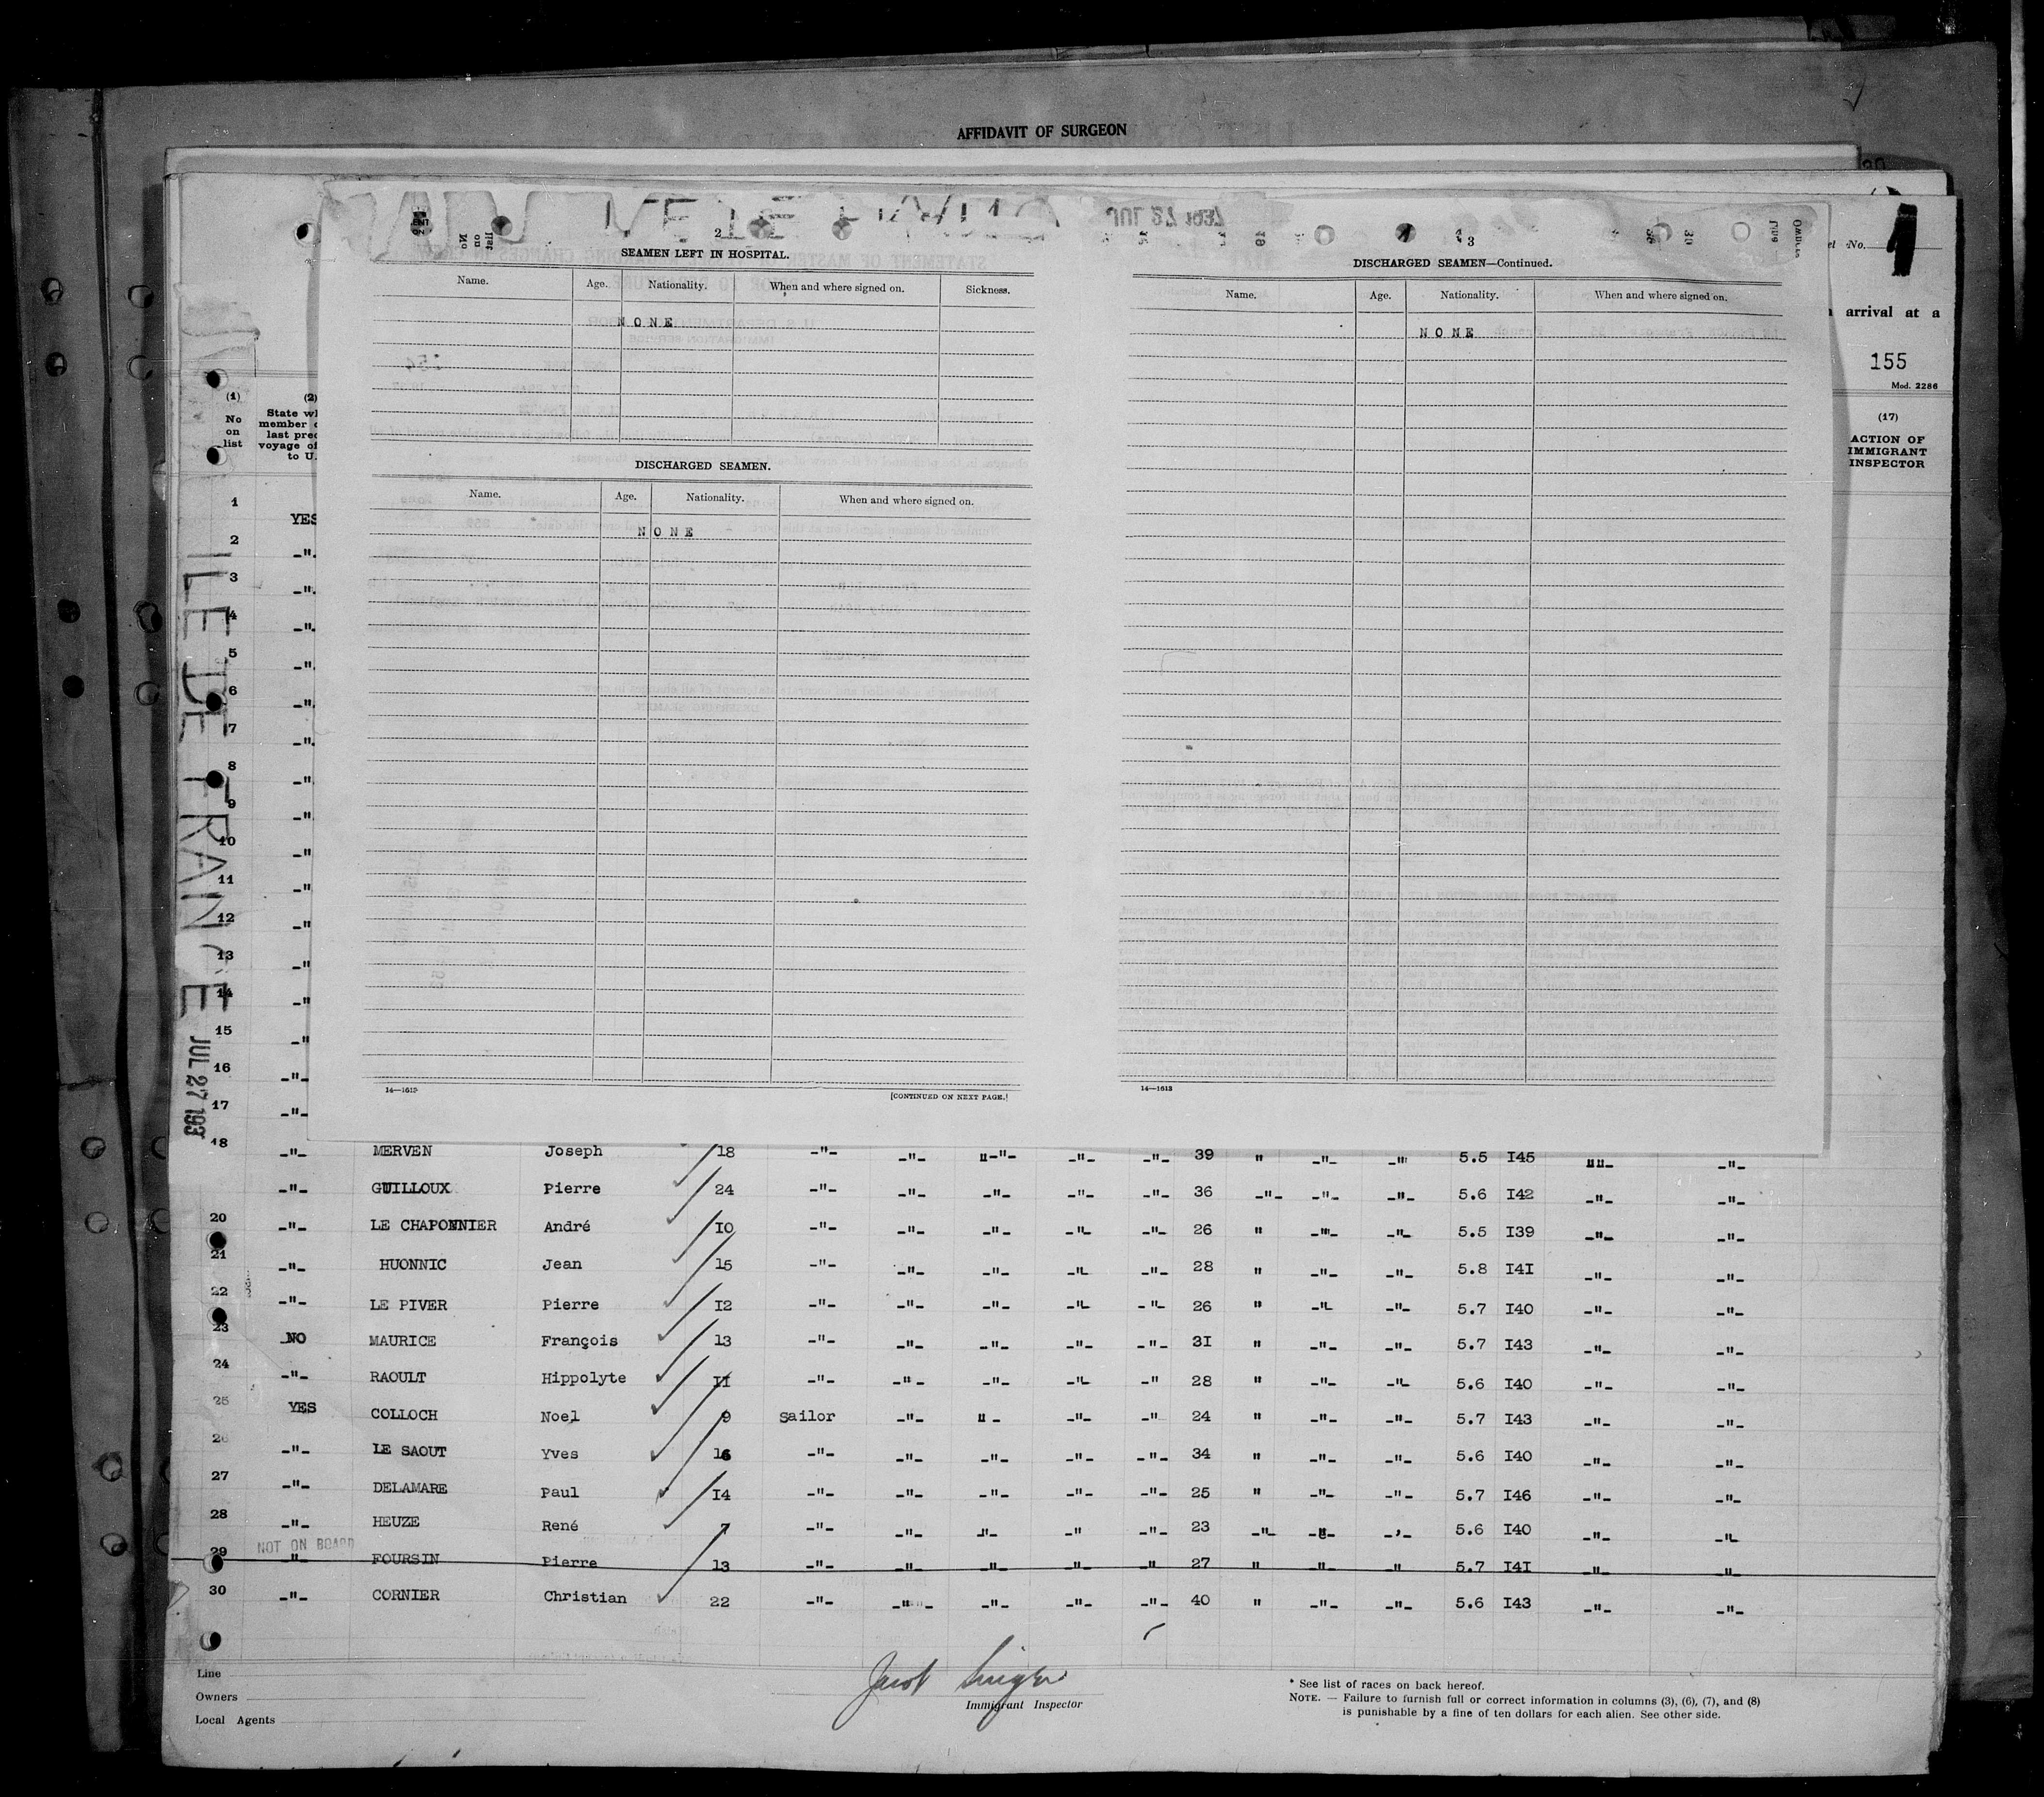 AFFIDAVIT OF SURGEON
JUL 27 1937
2
SEAMEN LEFT IN HOSPITAL.
Name. Age. Nationality. When and where signed on. Sickness.
NONE
DISCHARGED SEAMEN.
Name. Age. Nationality. When and where signed on.
NONE
14—1613
[CONTINUED ON NEXT PAGE.]
3
DISCHARGED SEAMEN—Continued.
Name. Age. Nationality. When and where signed on.
NONE
14—1613
No.
1
arrival at a
155
Mod. 2286
(17)
ACTION OF
IMMIGRANT
INSPECTOR
(1)
No
on
list
(2)
State
member
last
voyage
to U.
ILE DE FRANCE
JUL 27 193
1 YES
2 -"-
3 -"-
4 -"-
5 -"-
6 -"-
7 -"-
8 -"-
9 -"-
10 -"-
11 -"-
12 -"-
13 -"-
14 -"-
15 -"-
16 -"-
17 -"-
18 -"- MERVEN Joseph 18 -"- -"- "-"- -"- -"- 39 " -"- -"- 5.5 I45 ""- -"-
-"- GUILLOUX Pierre 24 -"- -"- -"- -"- -"- 36 -"- -"- -"- 5.6 I42 -"- -"-
20 -"- LE CHAPONNIER André IO -"- -"- -"- -"- -"- 26 " -"- -"- 5.5 I39 -"- -"-
21 -"- HUONNIC Jean 15 -"- -"- -"- -"- -"- 28 " -"- -"- 5.8 I4I -"- -"-
22 -"- LE PIVER Pierre I2 -"- -"- -"- -"- -"- 26 " -"- -"- 5.7 I40 -"- -"-
23 NO MAURICE François 13 -"- -"- -"- -"- -"- 3I " -"- -"- 5.7 I43 -"- -"-
24 -"- RAOULT Hippolyte II -"- -"- -"- -"- -" 28 " -"- -"- 5.6 I40 -"- -"-
25 YES COLLOCH Noel 9 Sailor -"- "- -"- -" 24 " -"- -"- 5.7 I43 -"- -"-
26 -"- LE SAOUT Yves 16 -"- -"- -"- -"- -"- 34 " -"- -"- 5.6 I40 -"- -"-
27 -"- DELAMARE Paul I4 -"- -"- -"- -"- -"- 25 " -"- -"- 5.7 I46 -"- -"-
28 -"- HEUZE René 7 -"- -"- -"- -" -"- 23 -"- -"- -"- 5.6 I40 -"- -"-
NOT ON BOARD
29 " FOURSIN Pierre 13 -"- -"- -"- -"- -" 27 " -"- -" 5.7 I4I -"- -"-
30 -"- CORNIER Christian 22 -"- -"- -"- -"- -"- 40 " -"- -"- 5.6 I43 -"- -"-
Line
Owners
Local Agents
Immigrant Inspector
* See list of races on back hereof.
NOTE. — Failure to furnish full or correct information in columns (3), (6), (7), and (8)
is punishable by a fine of ten dollars for each alien. See other side.